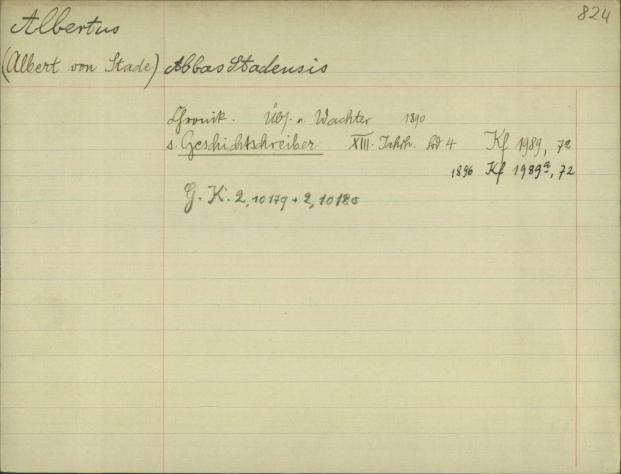 824
Albertus
(Albert von Stade) Abbas Stadensis
Chronik. Übs. v. Wachter 1890
s. Geschichtschreiber XIII. Jahrh. Bd 4 Kf 1989, 72
1896 Kf 1989a, 72
G. K. 2, 10179 + 2, 10180